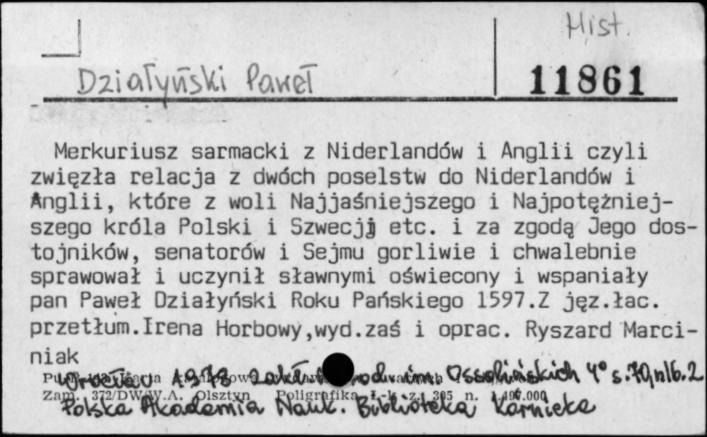 Hist.
Działyński Paweł
11861
Merkuriusz sarmacki z Niderlandów i Anglii czyli
zwięzła relacja z dwóch poselstw do Niderlandów i
Anglii, które z woli Najjaśniejszego i Najpotężniej-
szego króla Polski i Szwecji etc. i za zgodą Jego dos-
tojników, senatorów i Sejmu gorliwie i chwalebnie
sprawował i uczynił sławnymi oświecony i wspaniały
pan Paweł Działyński Roku Pańskiego 1597.Z jęz.łac.
przetłum.Irena Horbowy,wyd.zaś i oprac. Ryszard Marci-
niak
Wrocław 1978 Zakł. Narod. im. Ossolińskich 4° s. 70, nlb. 2
Zam. 372/DW/W.A. Olsztyn Poligrafika z. 305 n. 1.400.000
Polska Akademia Nauk. Biblioteka Kórnicka